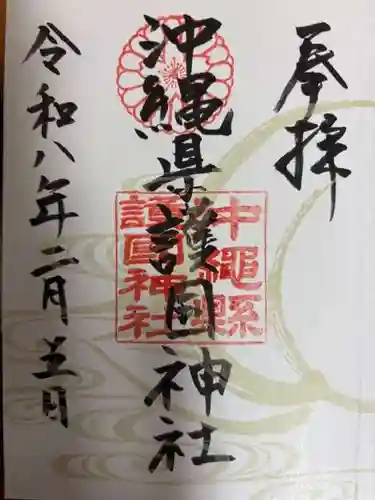 奉拝
沖縄県護国神社
沖繩縣
護国神社
令和八年二月五日